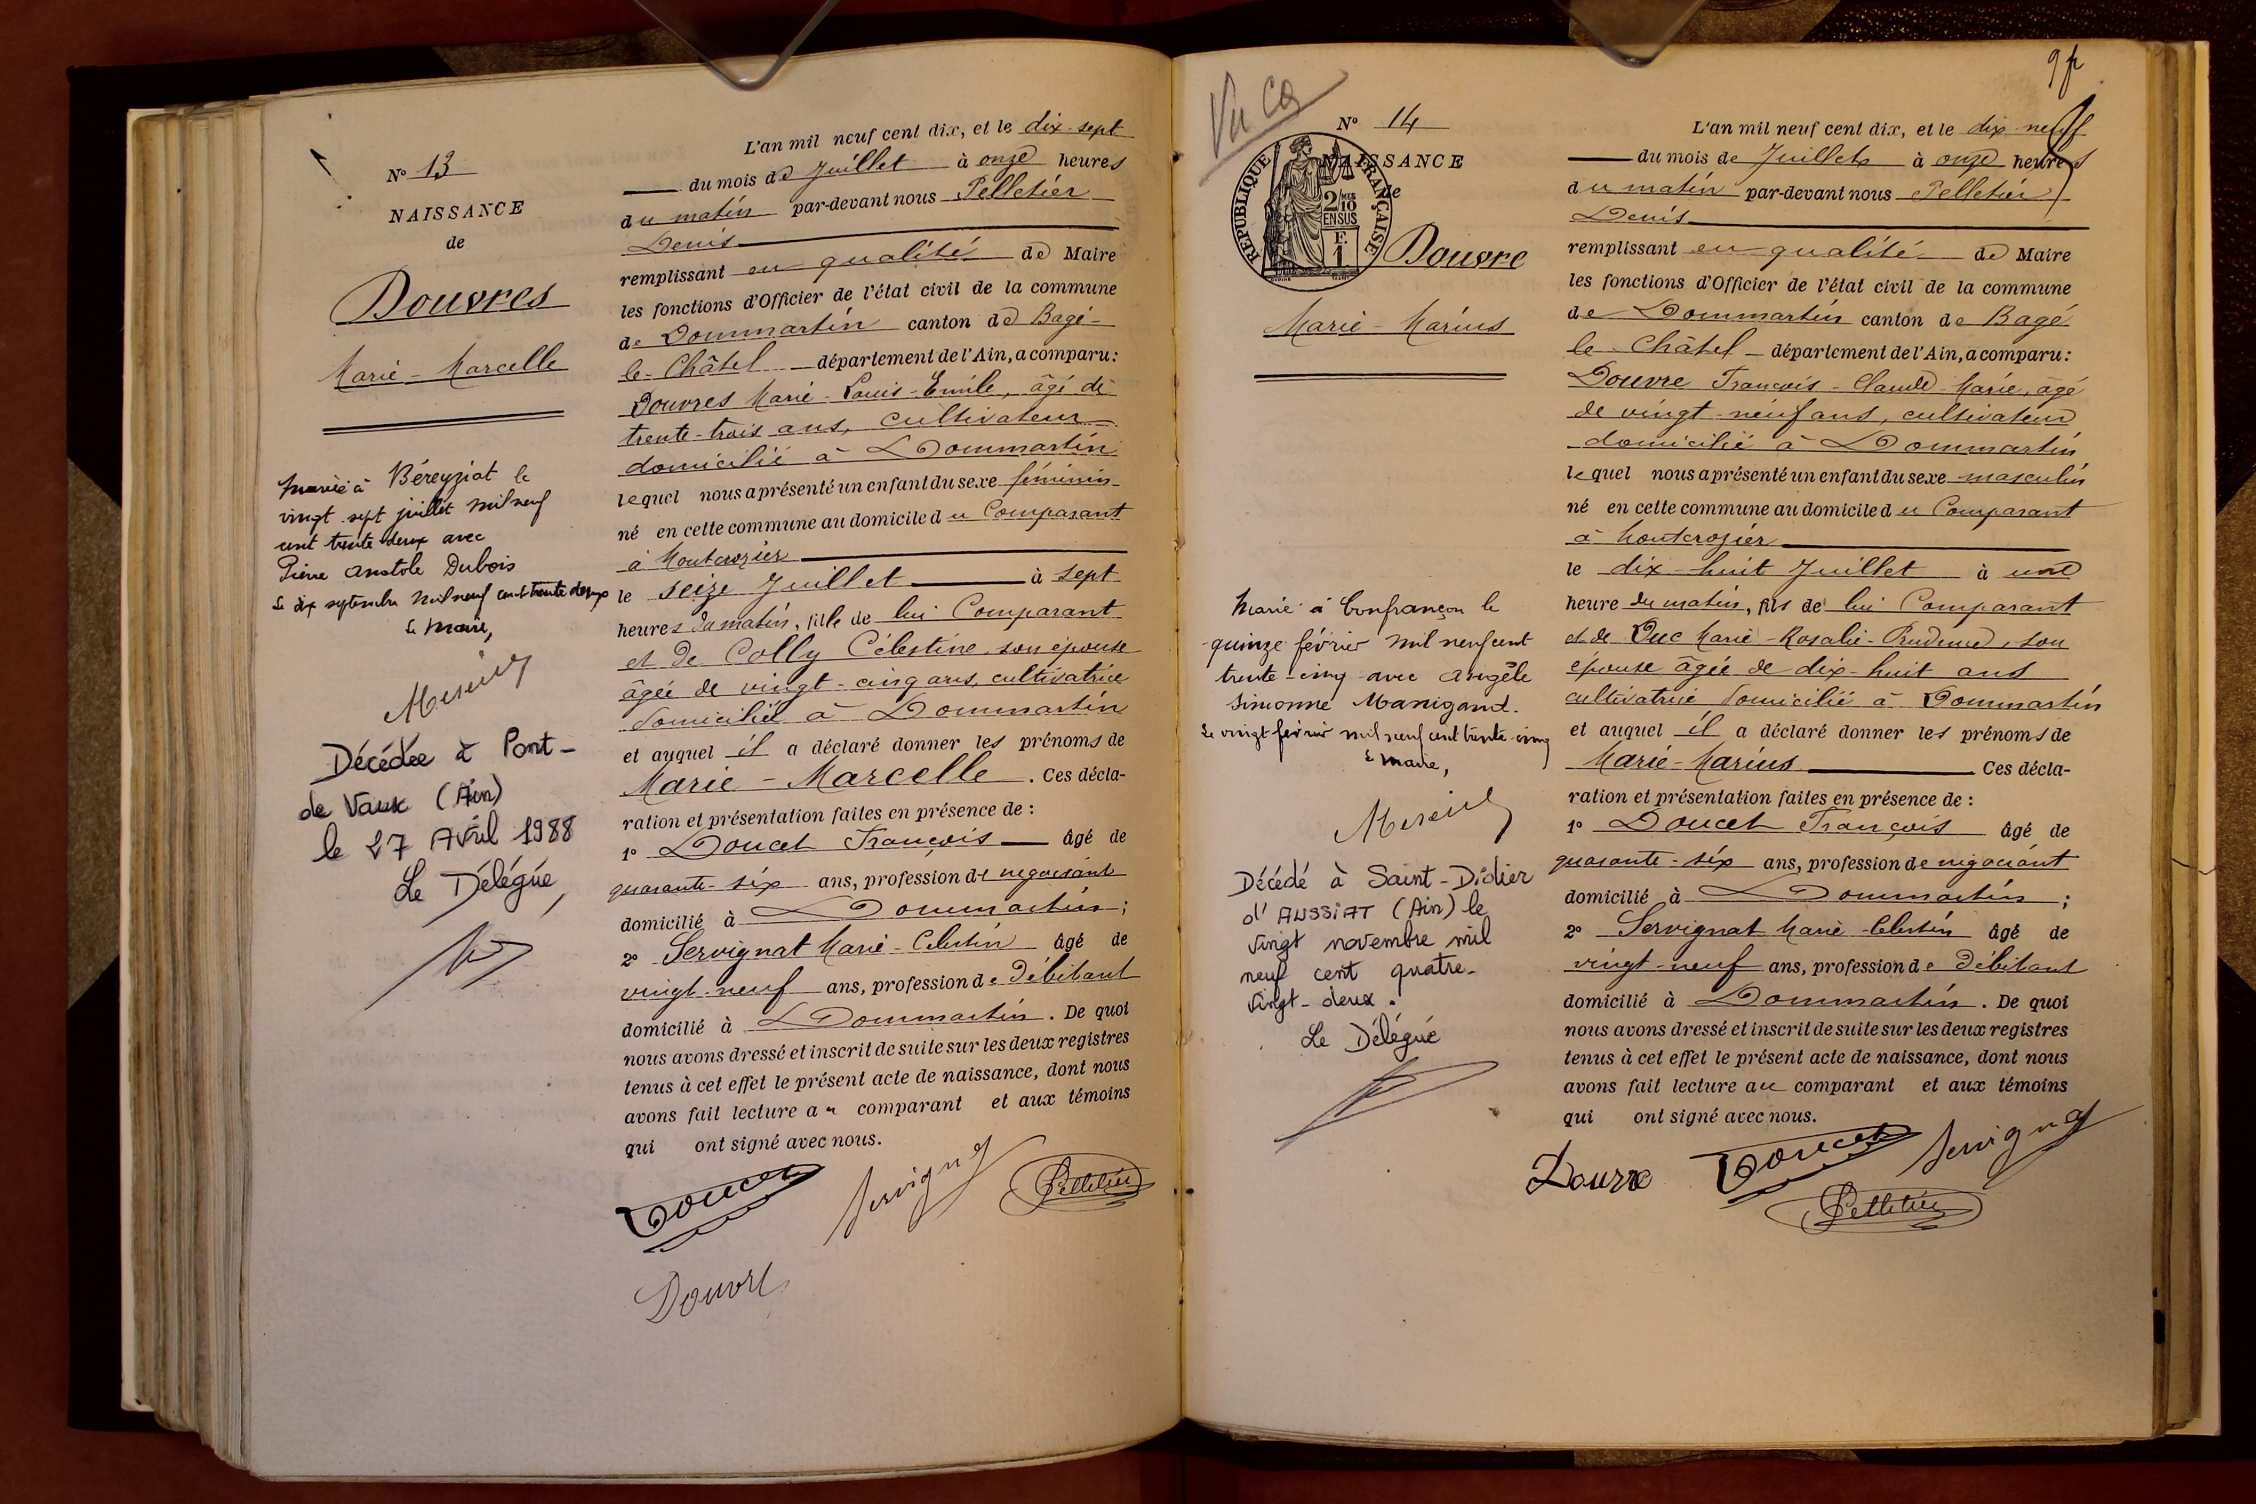 N° 13
NAISSANCE
de
Douvres
Marie-Marcelle
Mariée à Béreyziat le
vingt sept juillet mil neuf
cent trente deux avec
Pierre Anatole Dubois
Le dix septembre mil neuf cent trente deux
Le Maire,
Décédée à Pont-
de Vaux (Ain)
le 27 Avril 1988
Le Délégué,
L'an mil neuf cent dix, et le dix-sept
du mois de Juillet à onze heures
du matin par-devant nous Pelletier
Denis
remplissant en qualité de Maire
les fonctions d'Officier de l'état civil de la commune
de Dommartin canton de Bagé-
le-Châtel département de l'Ain, a comparu :
Douvres Marie-Louis-Emile, âgé de
trente-trois ans, cultivateur
domicilié à Dommartin
lequel nous a présenté un enfant du sexe féminin
né en cette commune au domicile du Comparant
à Montcrozier
le seize Juillet à sept
heures du matin, fille de lui Comparant
et de Colly Célestine son épouse
âgée de vingt-cinq ans, cultivatrice
domiciliée à Dommartin
et auquel il a déclaré donner les prénoms de
Marie-Marcelle. Ces décla-
ration et présentation faites en présence de :
1° Doucet François âgé de
quarante-six ans, profession de négociant
domicilié à Dommartin ;
2° Servignat Marie-Celestin âgé de
vingt-neuf ans, profession de Débitant
domicilié à Dommartin. De quoi
nous avons dressé et inscrit de suite sur les deux registres
tenus à cet effet le présent acte de naissance, dont nous
avons fait lecture au comparant et aux témoins
qui ont signé avec nous.
Doucet Servignat Pelletier
Douvres
9
Vu
N° 14
NAISSANCE
de
REPUBLIQUE FRANÇAISE
2/10
EN SUS
F.
1
Douvre
Marie-Marius
Marié à Confrançon le
quinze février mil neuf cent
trente-cinq avec Angèle
Simonne Manigand.
Le vingt février mil neuf cent trente-cinq
Le Maire,
Décédé à Saint-Didier
d'AUSSIAT (Ain) le
vingt novembre mil
neuf cent quatre-
vingt-deux.
Le Délégué
L'an mil neuf cent dix, et le dix-neuf
du mois de Juillet à onze heures
du matin par-devant nous Pelletier
Denis
remplissant en qualité de Maire
les fonctions d'Officier de l'état civil de la commune
de Dommartin canton de Bagé
le-Châtel département de l'Ain, a comparu :
Douvre François-Claude-Marie, âgé
de vingt-neuf ans, cultivateur
domicilié à Dommartin
lequel nous a présenté un enfant du sexe masculin
né en cette commune au domicile du Comparant
à Montcrozier
le dix-huit Juillet à une
heure du matin, fils de lui Comparant
et de Duc Marie-Rosalie-Prudence, son
épouse âgée de dix-huit ans
cultivatrice domiciliée à Dommartin
et auquel il a déclaré donner les prénoms de
Marie-Marius Ces décla-
ration et présentation faites en présence de :
1° Doucet François âgé de
quarante-six ans, profession de négociant
domicilié à Dommartin ;
2° Servignat Marie-Célestin âgé de
vingt-neuf ans, profession de Débitant
domicilié à Dommartin. De quoi
nous avons dressé et inscrit de suite sur les deux registres
tenus à cet effet le présent acte de naissance, dont nous
avons fait lecture au comparant et aux témoins
qui ont signé avec nous.
Douvre Doucet Servignat
Pelletier